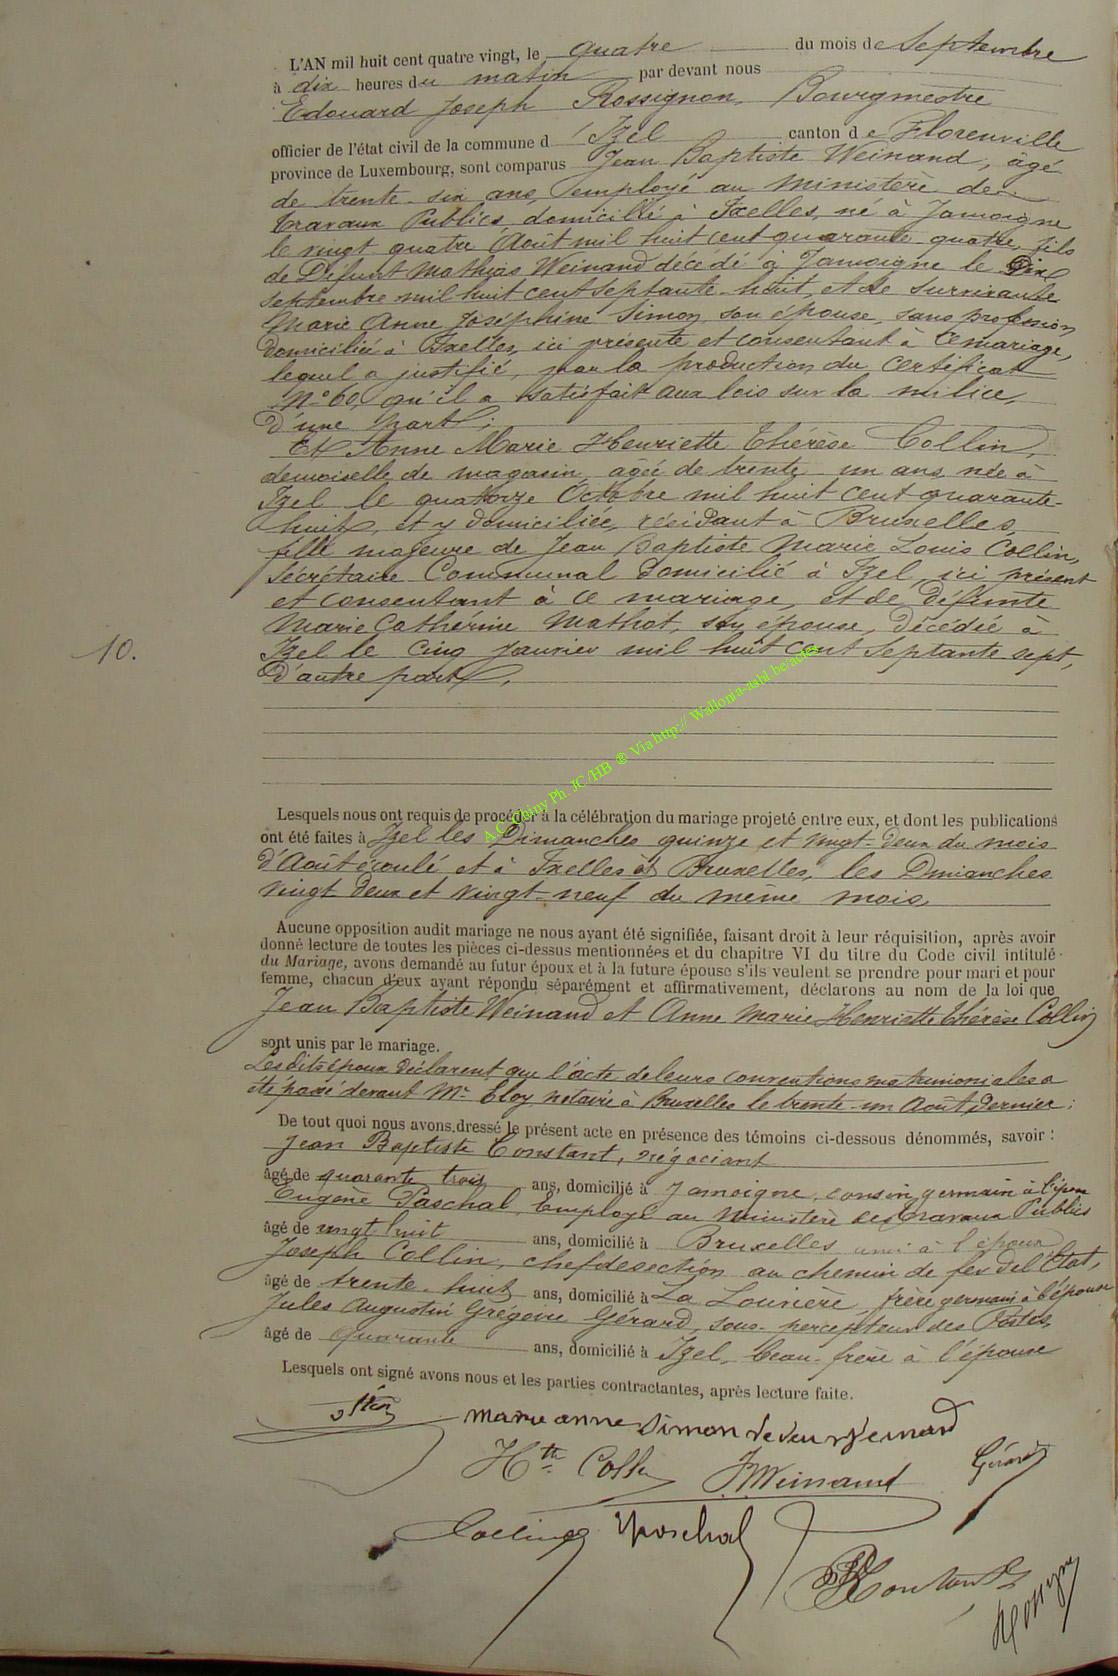 L'AN mil huit cent quatre vingt, le quatre du mois de Septembre
à dix heures du matin par devant nous
Edouard Joseph Rossignon, Bourgmestre
officier de l'état civil de la commune d'Izel canton de Florenville
province de Luxembourg, sont comparus Jean Baptiste Weinand, âgé
de trente-six ans, employé au Ministère des
travaux Publics domicilié à Ixelles, né à Jamoigne
le vingt quatre Août mil huit cent quarante quatre, fils
de Défunt Mathias Weinand décédé à Jamoigne le Dix
septembre mil huit cent septante-huit, et de survivante
Marie Anne Joséphine Simon son épouse, sans profession,
domiciliée à Ixelles, ici présente et consentant à ce mariage,
lequel a justifié, par la production du certificat
N° 60, qu'il a satisfait aux lois sur la milice,
d'une part;
Et Anne Marie Henriette Thérèse Collin,
demoiselle de magasin, agée de trente un ans, née à
Izel le quatorze Octobre mil huit cent quarante-
huit, et y domiciliée, résidant à Bruxelles,
fille majeure de Jean Baptiste Marie Louis Collin,
Sécrétaire Communal domicilié à Izel, ici présent
et consentant à ce mariage, et de défunte
Marie Catherine Mathot, son épouse, Décédée à
10.
Izel le cinq janvier mil huit cent septante-sept,
d'autre part.
A.C. Chiny Ph. JC/HB ® Via http:// Wallonia-asbl.be/actes
Lesquels nous ont requis de procéder à la célébration du mariage projeté entre eux, et dont les publications
ont été faites à Izel les Dimanches quinze et vingt-deux du mois
d'Août écoulé et à Ixelles et Bruxelles, les Dimanches
vingt deux et vingt-neuf du même mois,
Aucune opposition audit mariage ne nous ayant été signifiée, faisant droit à leur réquisition, après avoir
donné lecture de toutes les pièces ci-dessus mentionnées et du chapitre VI du titre du Code civil intitulé
du Mariage, avons demandé au futur époux et à la future épouse s'ils veulent se prendre pour mari et pour
femme, chacun d'eux ayant répondu séparément et affirmativement, déclarons au nom de la loi que
Jean Baptiste Weinand et Anne Marie Henriette Thérèse Collin
sont unis par le mariage.
Les dits époux déclarent que l'acte de leurs conventions matrimoniales a
été passé devant Mr Eloy notaire à Bruxelles le trente-un Août dernier;
De tout quoi nous avons dressé le présent acte en présence des témoins ci-dessous dénommés, savoir:
Jean Baptiste Constant, négociant
âgé de quarante trois ans, domicilié à Jamoigne, cousin germain à l'époux
Eugène Paschal, Employé au Ministère des travaux Publics
âgé de vingt huit ans, domicilié à Bruxelles ami à l'époux
Joseph Collin, chef de section au chemin de fer de l'Etat,
âgé de trente-huit ans, domicilié à La Louvière, frère germain à l'épouse
Jules Augustin Grégoire Gérard, sous-percepteur des Postes,
âgé de quarante ans, domicilié à Izel, beau-frère à l'épouse
Lesquels ont signé avons nous et les parties contractantes, après lecture faite.
marie anne Simon veveu Weinand
Hte Collin JWeinand Gérard
Collin Paschal
Constant